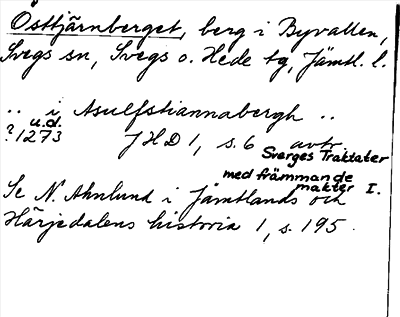 Östtjärnberget, berg i Byvallen,
Svegs sn, Svegs o. Hede tg, Jämtl. l.
.. i Asulfstiannabergh ..
u.d.
?1273 JHD 1, s. 6 avtr.
Sverges Traktater
med främmande
makter I.
Se N. Ahnlund i Jämtlands och
Härjedalens historia 1, s. 195.